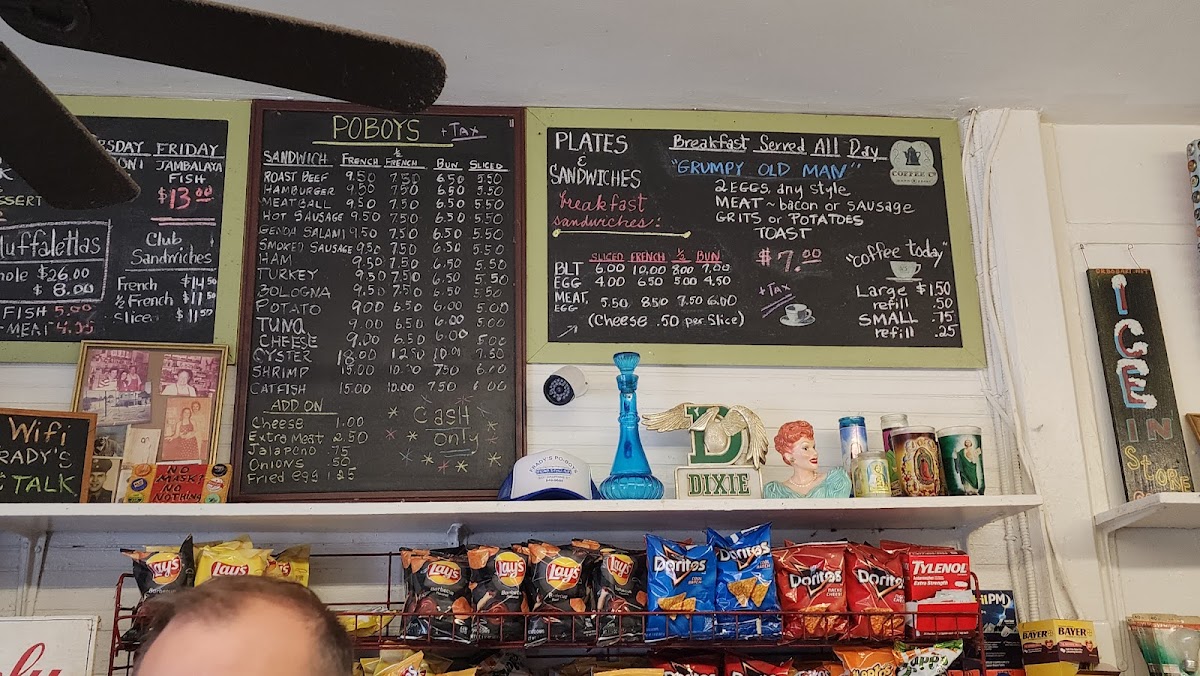 RSDAY FRIDAY
JAMBALAYA
FISH
$13.00
SSERT
Muffalettas
hole $26.00
$ 8.00
FISH 5.00
MEAT 4.95
Club
Sandwiches
French $14.50
½ French $11.50
Slice $11.50
POBOYS + TAX
SANDWICH FRENCH ½ FRENCH BUN SLICED
ROAST BEEF 9.50 7.50 6.50 5.50
HAMBURGER 9.50 7.50 6.50 5.50
MEATBALL 9.50 7.50 6.50 5.50
HOT SAUSAGE 9.50 7.50 6.50 5.50
GENOA SALAMI 9.50 7.50 6.50 5.50
SMOKED SAUSAGE 9.50 7.50 6.50 5.50
HAM 9.50 7.50 6.50 5.50
TURKEY 9.50 7.50 6.50 5.50
BOLOGNA 9.50 7.50 6.50 5.50
POTATO 9.00 6.50 6.00 5.00
TUNA 9.00 6.50 6.00 5.00
CHEESE 9.00 6.50 6.00 5.00
OYSTER 18.00 12.50 10.00 7.50
SHRIMP 15.00 10.00 7.50 6.00
CATFISH 15.00 10.00 7.50 6.00
ADD ON
Cheese 1.00
Extra Meat 2.50
Jalapeno .75
Onions .50
Fried egg 1.25
Cash
only
PLATES
&
SANDWICHES
breakfast
sandwiches:
Breakfast Served All Day
"GRUMPY OLD MAN"
2 EGGS, any style
MEAT ~ bacon or SAUSAGE
GRITS or POTATOES
TOAST
$7.00
+TAX
SLICED FRENCH ½ BUN
BLT 6.00 10.00 8.00 7.00
EGG 4.00 6.50 5.00 4.50
MEAT, EGG 5.50 8.50 7.50 6.00
(Cheese .50 per Slice)
COFFEE Co
"coffee today"
Large $1.50
refill .50
SMALL .75
refill .25
WiFi
RADY'S
TALK
NO MASK?
NO
NOTHING
FRADY'S PO-BOY'S
DIXIE
ICE
IN
STORE
Lay's
Lay's
Lay's
Lay's
Lay's
Lay's
Barbecue
Doritos
Doritos
Doritos
Doritos
TYLENOL
Extra Strength
PM
BAYER
BAYER